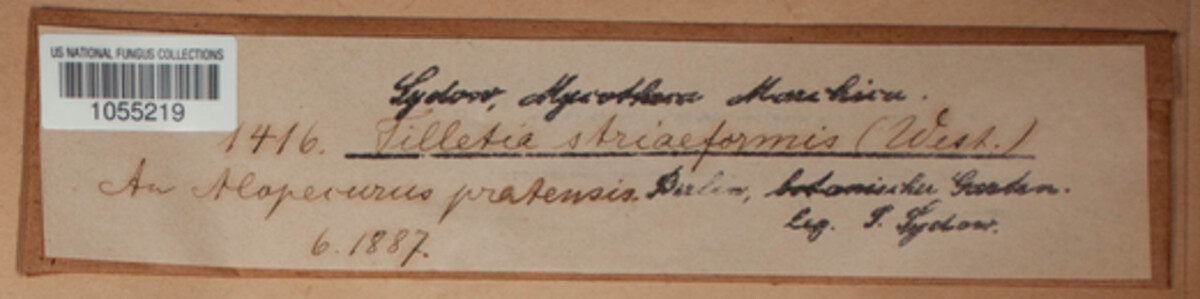 US NATIONAL FUNGUS COLLECTIONS
1055219
Sydow, Mycotheca Marchica.
1416. Tilletia striaeformis (West.)
An Alopecurus pratensis. Berlin, botanischer Garten.
6. 1887. leg. P. Sydow.